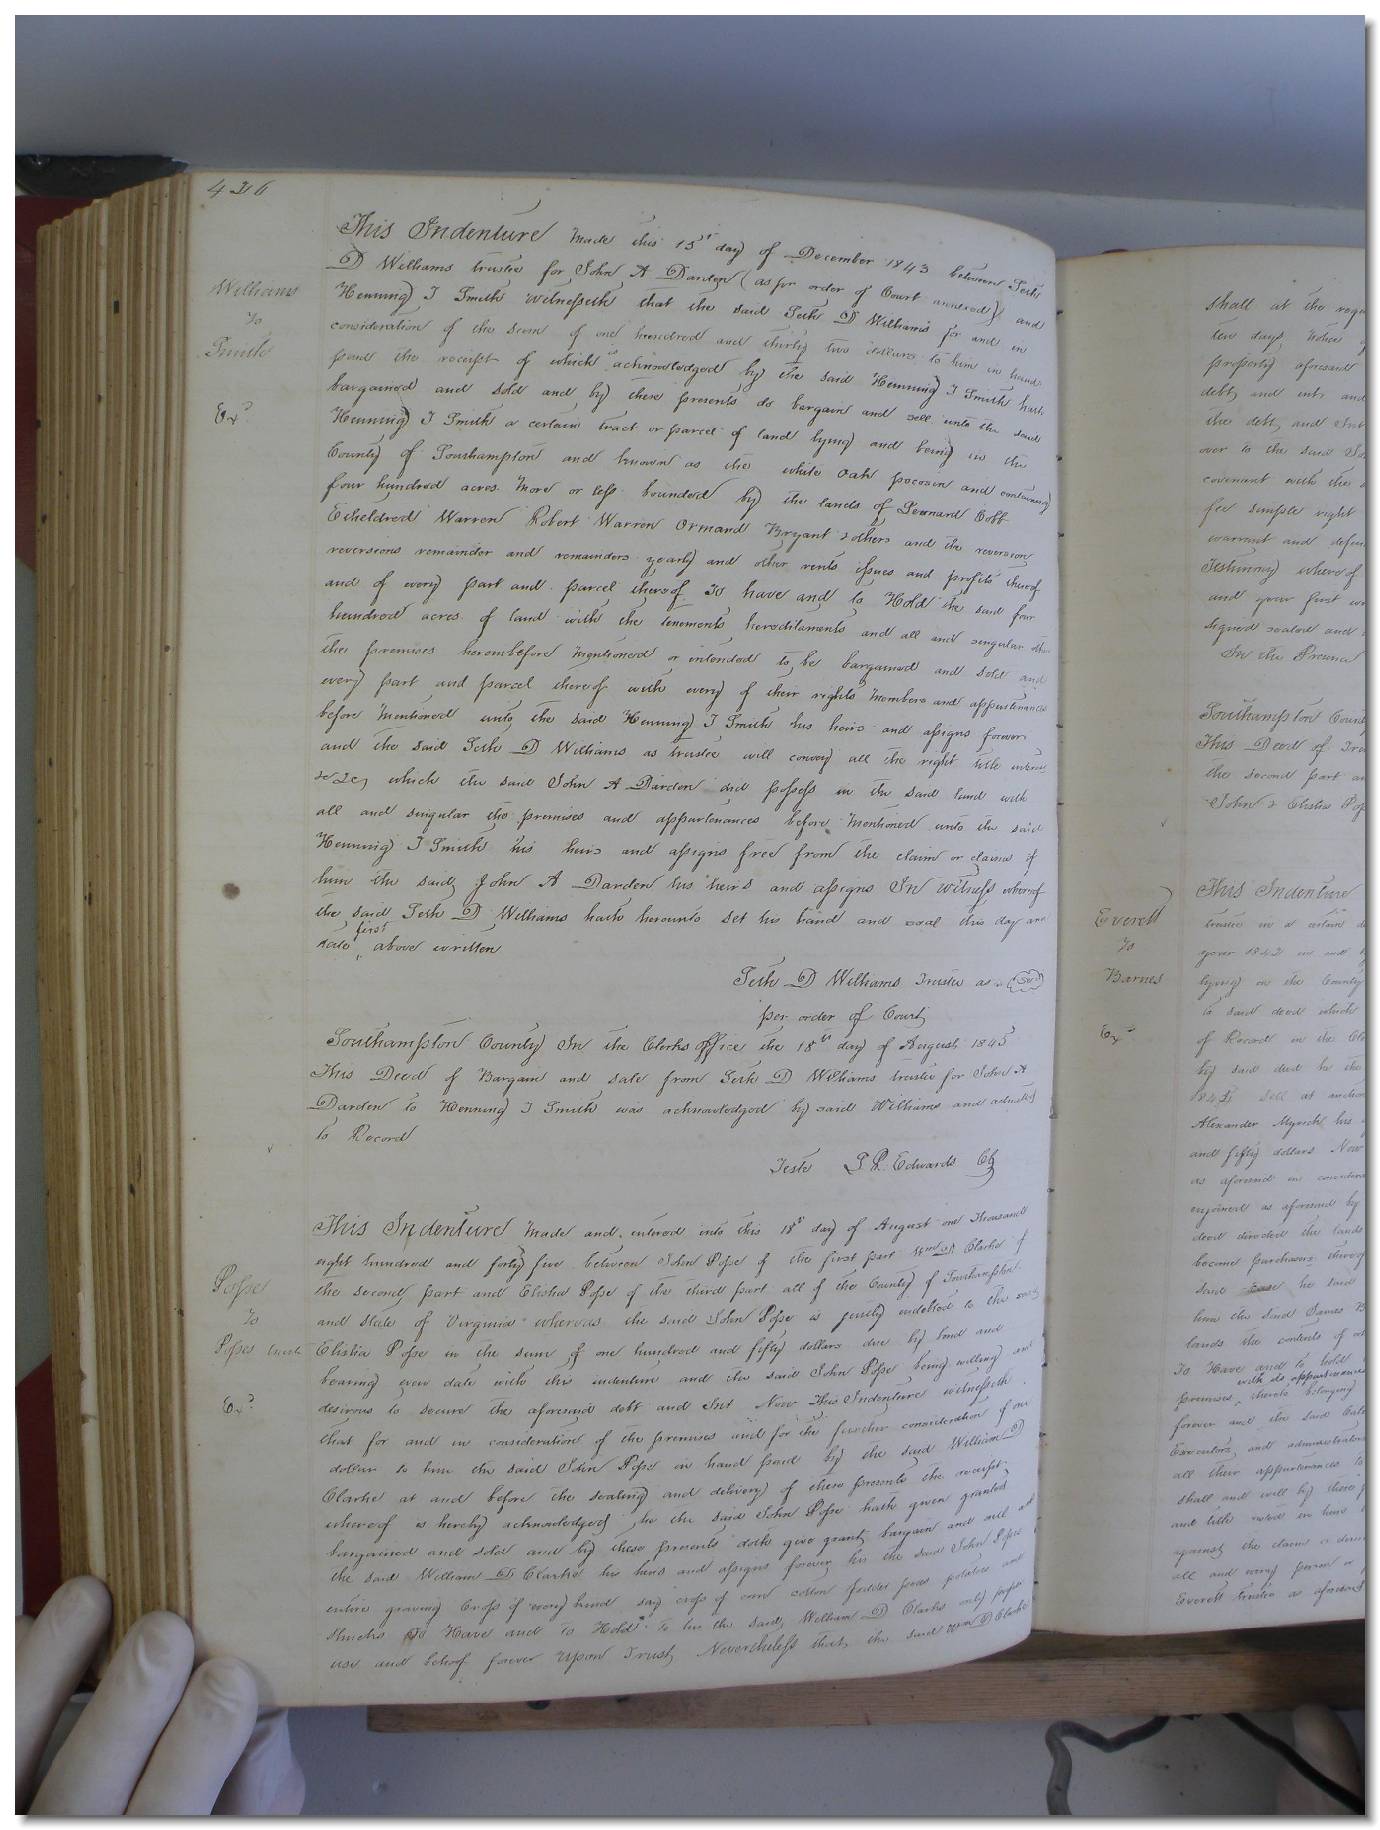 436
This Indenture Made this 15st day of December 1843 between Seth
D Williams trustee for John A Darden (as per order of Court annexed) and
Williams
to
Smith
Exd
Henning T Smith witnesseth that the said Seth D Williams for and in
consideration of the sum of one hundred and thirty two dollars to him in hand
paid the receipt of which is acknowledged by the said Henning T Smith hath
bargained and sold and by these presents do bargain and sell unto the said
Henning T Smith a certain tract or parcel of land lying and being in the
County of Southampton and known as the white oak pocosin and containing
four hundred acres More or less bounded by the lands of Leonard Cobb
Etheldred Warren Robert Warren Ormand Bryant & others and the reversion
reversions remainder and remainders yearly and other rents issues and profits thereof
and of every part and parcel thereof To have and to Hold the said four
hundred acres of land with the tenements hereditaments and all and singular other
the premises hereinbefore Mentioned or intended to be bargained and sold and
every part and parcel thereof with every of their rights Members and appurtenances
before Mentioned unto the said Henning T Smith his heirs and assigns forever
and the said Seth D Williams as trustee will convey all the right title interest
&c &c, which the said John A Darden did possess in the said land with
all and singular the premises and appurtenances before Mentioned unto the said
Henning T Smith his heirs and assigns free from the claim or claims of
him the said John A Darden his heirs and assigns In witness whereof
the said Seth D Williams hath hereunto set his hand and seal this day and
date first above written
Seth D Williams Trustee as
per order of Court
Southampton County In the Clerks Office the 18th day of August 1845
This Deed of Bargain and Sale from Seth D Williams trustee for John A
Darden to Henning T Smith was acknowledged by said Williams and admitted
to Record
Teste L R Edwards Clk
This Indenture Made and entered into this 18th day of August one Thousand
eight hundred and forty five between John Pope of the first part Wm D Clarke of
Pope
to
Popes trust
Exd
the second part and Elisha Pope of the third part all of the County of Southampton
and State of Virginia whereas the said John Pope is justly indebted to the said
Elisha Pope in the sum of one hundred and fifty dollars due by bond and
bearing even date with this indenture and the said John Pope being willing and
desirous to secure the aforesaid debt and Int Now This Indenture witnesseth
that for and in consideration of the premises and for the further consideration of one
dollar to him the said John Pope in hand paid by the said William D
Clarke at and before the sealing and delivery of these presents the receipt
whereof is hereby acknowledged he the said John Pope hath given granted
bargained and sold and by these presents doth give grant bargain and sell unto
the said William D Clarke his heirs and assigns forever his the said John Popes
entire growing Crops of every kind say crops of corn cotton fodder peas potatoes and
To Have and to Hold to him the said William D Clarke only proper
use and behoof forever Upon Trust Nevertheless that the said Wm D Clarke
shall at the
ten days notice
property aforesaid
debt, and int, and
the debt, and Int
over to the said
covenant with the
fee simple right
warrant and
Testimony whereof
and year first
signed sealed and
In the Presence
Southampton
This Deed of
the second part
John & Elisha
Everett
to
Barnes
Exd
This Indenture
trustee in a certain
year 1842
lying in the County
to said deed which
of Record in the
by said deed
sell at
Alexander Myrick his
and fifty dollars Now
as aforesaid in
enjoined as aforesaid by
deed directed the lands
become purchaser thereof
said he said
him the said James B
lands the contents of
To Have and to hold
with its appurtenances
premises, thereto belonging
forever and the said
Executors, and administrators
all their appurtenances to
shall and will by these
and title vested in him
against the claim
all and every person or
Everett trustee as aforesaid